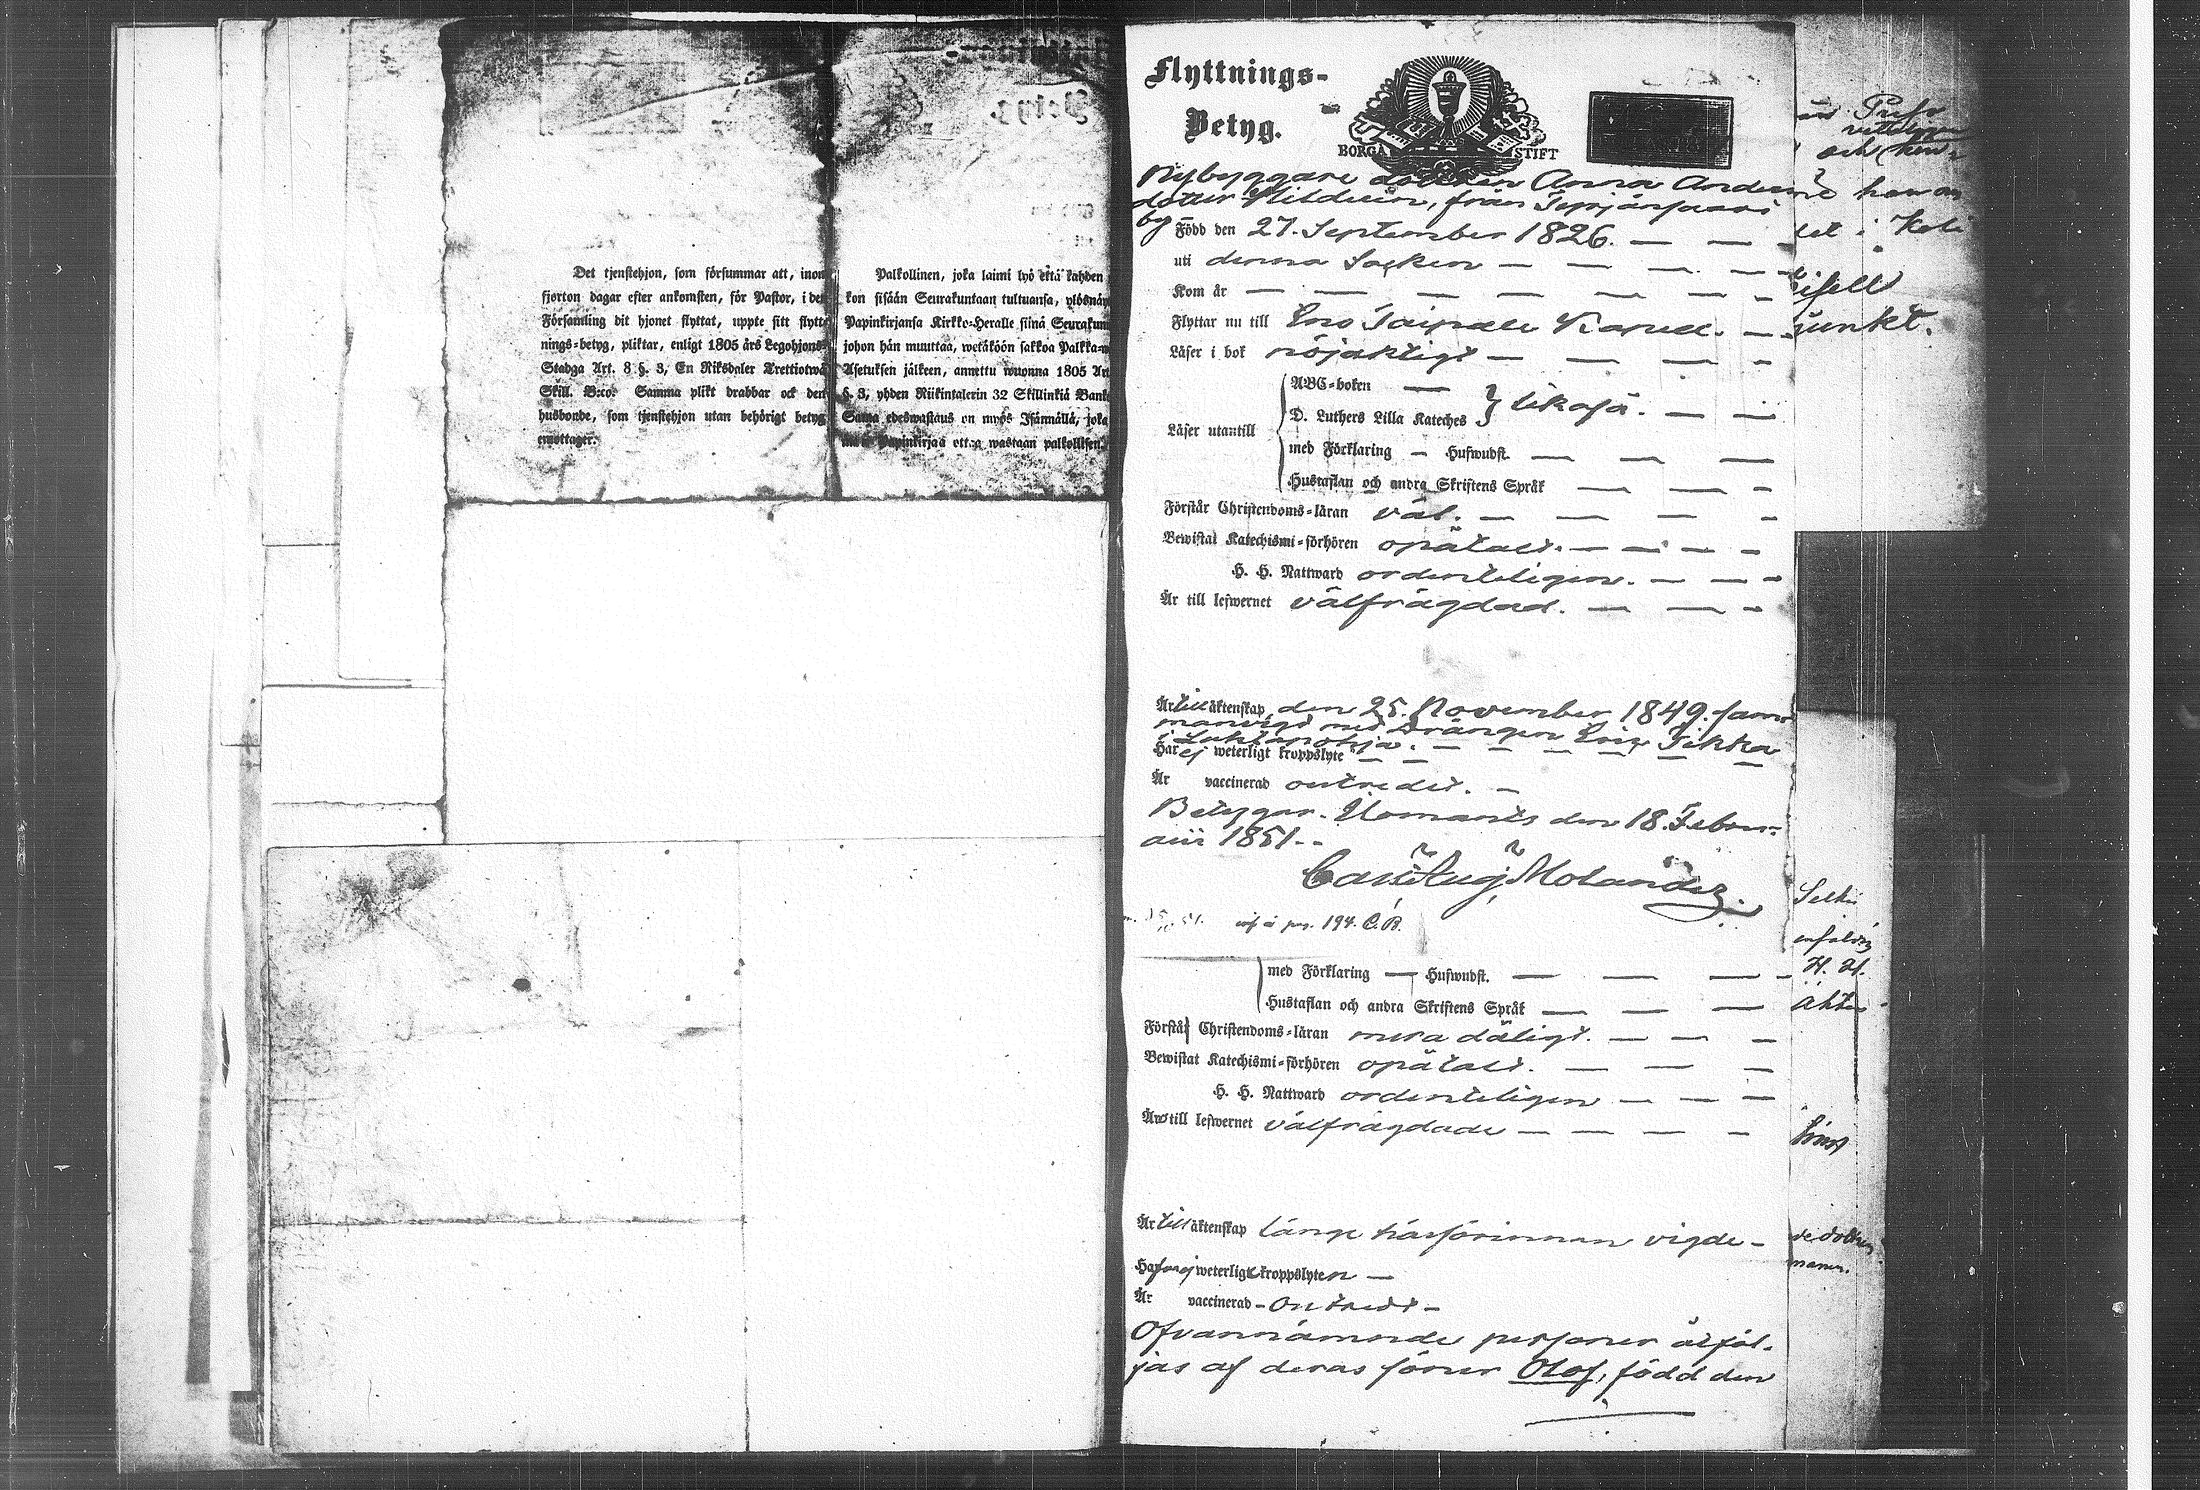 Det tjenstehjon, som försummar att, inom
fjorton dagar efter ankomsten, för Pastor, i den
Församling dit hjonet flyttat, uppte sitt flytt-
nings-betyg, pliktar, enligt 1805 års Legohjons-
Stadga Art. 8 §. 3, En Riksdaler Trettiotwå
Skill. B:co. Samma plikt drabbar ock den
husbonde, som tjenstehjon utan behörigt betyg
emottager.
Palkollinen, joka laimi lyö että kahden
kon sisään Seurakuntaan tultuansa, ylösnäy
Papinkirjansa Kirkko-Heralle siinä Seurakun
johon hän muuttaa, wetäköön sakkoa Palkka-w
Asetuksen jälkeen, annettu wuonna 1805 Art
§. 3, yhden Riikintalerin 32 Skillinkiä Banko
Sama edeswastaus on myös Isännällä, joka
Papinkirjaa ottaa wastaan palkollisen.
Flyttnings-
Betyg.
BORGÅ STIFT
Nybyggare dottren Anna Anders
dotter från
by Född den 27. September 1826. — —
uti denna Socken — — — —
Kom år — — — — — —
Flyttar nu till Eno Taipale Kapell. —
Läser i bok nöjaktigt — — — —
Läser utantill
ABC-boken —
D. Luthers Lilla Kateches } likaså. — —
med Förklaring — Hufwudst. — — —
Hustaflan och andra Skriftens Språk — — —
Förstår Christendoms-läran väl. — — — —
Bewistat Katechismi-förhören opåtalt. — — — —
H. H. Nattward ordenteligen. — — —
Är till lefwernet välfrägdad. — — —
Är till äktenskap den 25. November 1849. sam
manvigd med Drängen Eric Tikka
i
Har ej weterligt kroppslyte — —
Är vaccinerad outredt. —
Betygar. Ilomants den 18. Febru-
arii 1851. -
Carl Aug. Molander.
pag. 194. C. B.
med Förklaring — Hufwudst. — — — —
Hustaflan och andra Skriftens Språk — — —
Förstår Christendoms-läran mera dåligt. — — —
Bewistat Katechismi-förhören opåtalt. — — —
H. H. Nattward ordenteligen — — —
Äro till lefwernet välfrägdade — — — —
Är till äktenskap länge härförinnan vigde —
Hafva ej weterligt kroppslyten —
Är vaccinerad — outredt —
Ofvannämnde personer åtföl-
jas af deras söner Olof, född den
och
H. H.